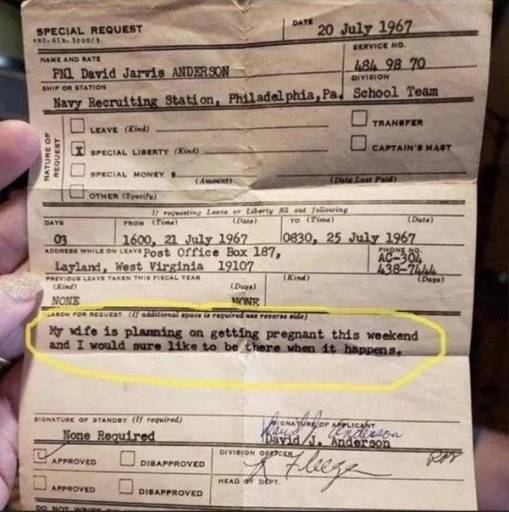 SPECIAL REQUEST
DATE 20 July 1967
SERVICE NO.
NAME AND RATE 484 98 70
PN1 David Jarvis ANDERSON
DIVISION
SHIP OR STATION
Navy Recruiting Station, Philadelphia, Pa. School Team
NATURE OF REQUEST
LEAVE (Kind) TRANSFER
X SPECIAL LIBERTY (Kind) CAPTAIN'S MAST
SPECIAL MONEY $
(Amount) (Date Last Paid)
OTHER (Specify)
If requesting Leave or Liberty fill out following
DAYS FROM (Time) (Date) TO (Time) (Date)
03 1600, 21 July 1967 0830, 25 July 1967
ADDRESS WHILE ON LEAVE Post Office Box 187, PHONE NO.
AC-304
Layland, West Virginia 19107 438-7444
PREVIOUS LEAVE TAKEN THIS FISCAL YEAR
(Kind) (Days) (Kind) (Days)
NONE NONE
REASON FOR REQUEST (If additional space is required use reverse side)
My wife is planning on getting pregnant this weekend
and I would sure like to be there when it happens.
SIGNATURE OF STANDBY (If required) SIGNATURE OF APPLICANT
None Required David J. Anderson
APPROVED DISAPPROVED DIVISION OFFICER
HEAD OF DEPT.
APPROVED DISAPPROVED